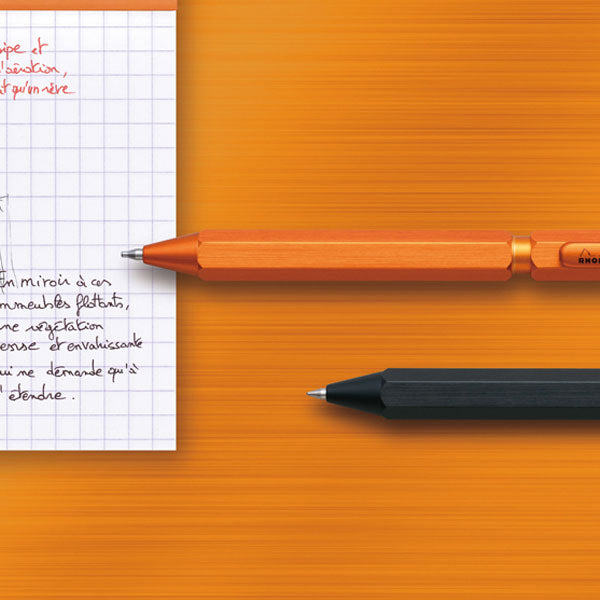 et
l'aération,
qu'un rêve
En miroir à ces
immeubles flottants,
une végétation
et envahissante
qui ne demande qu'à
s'étendre.
RHO